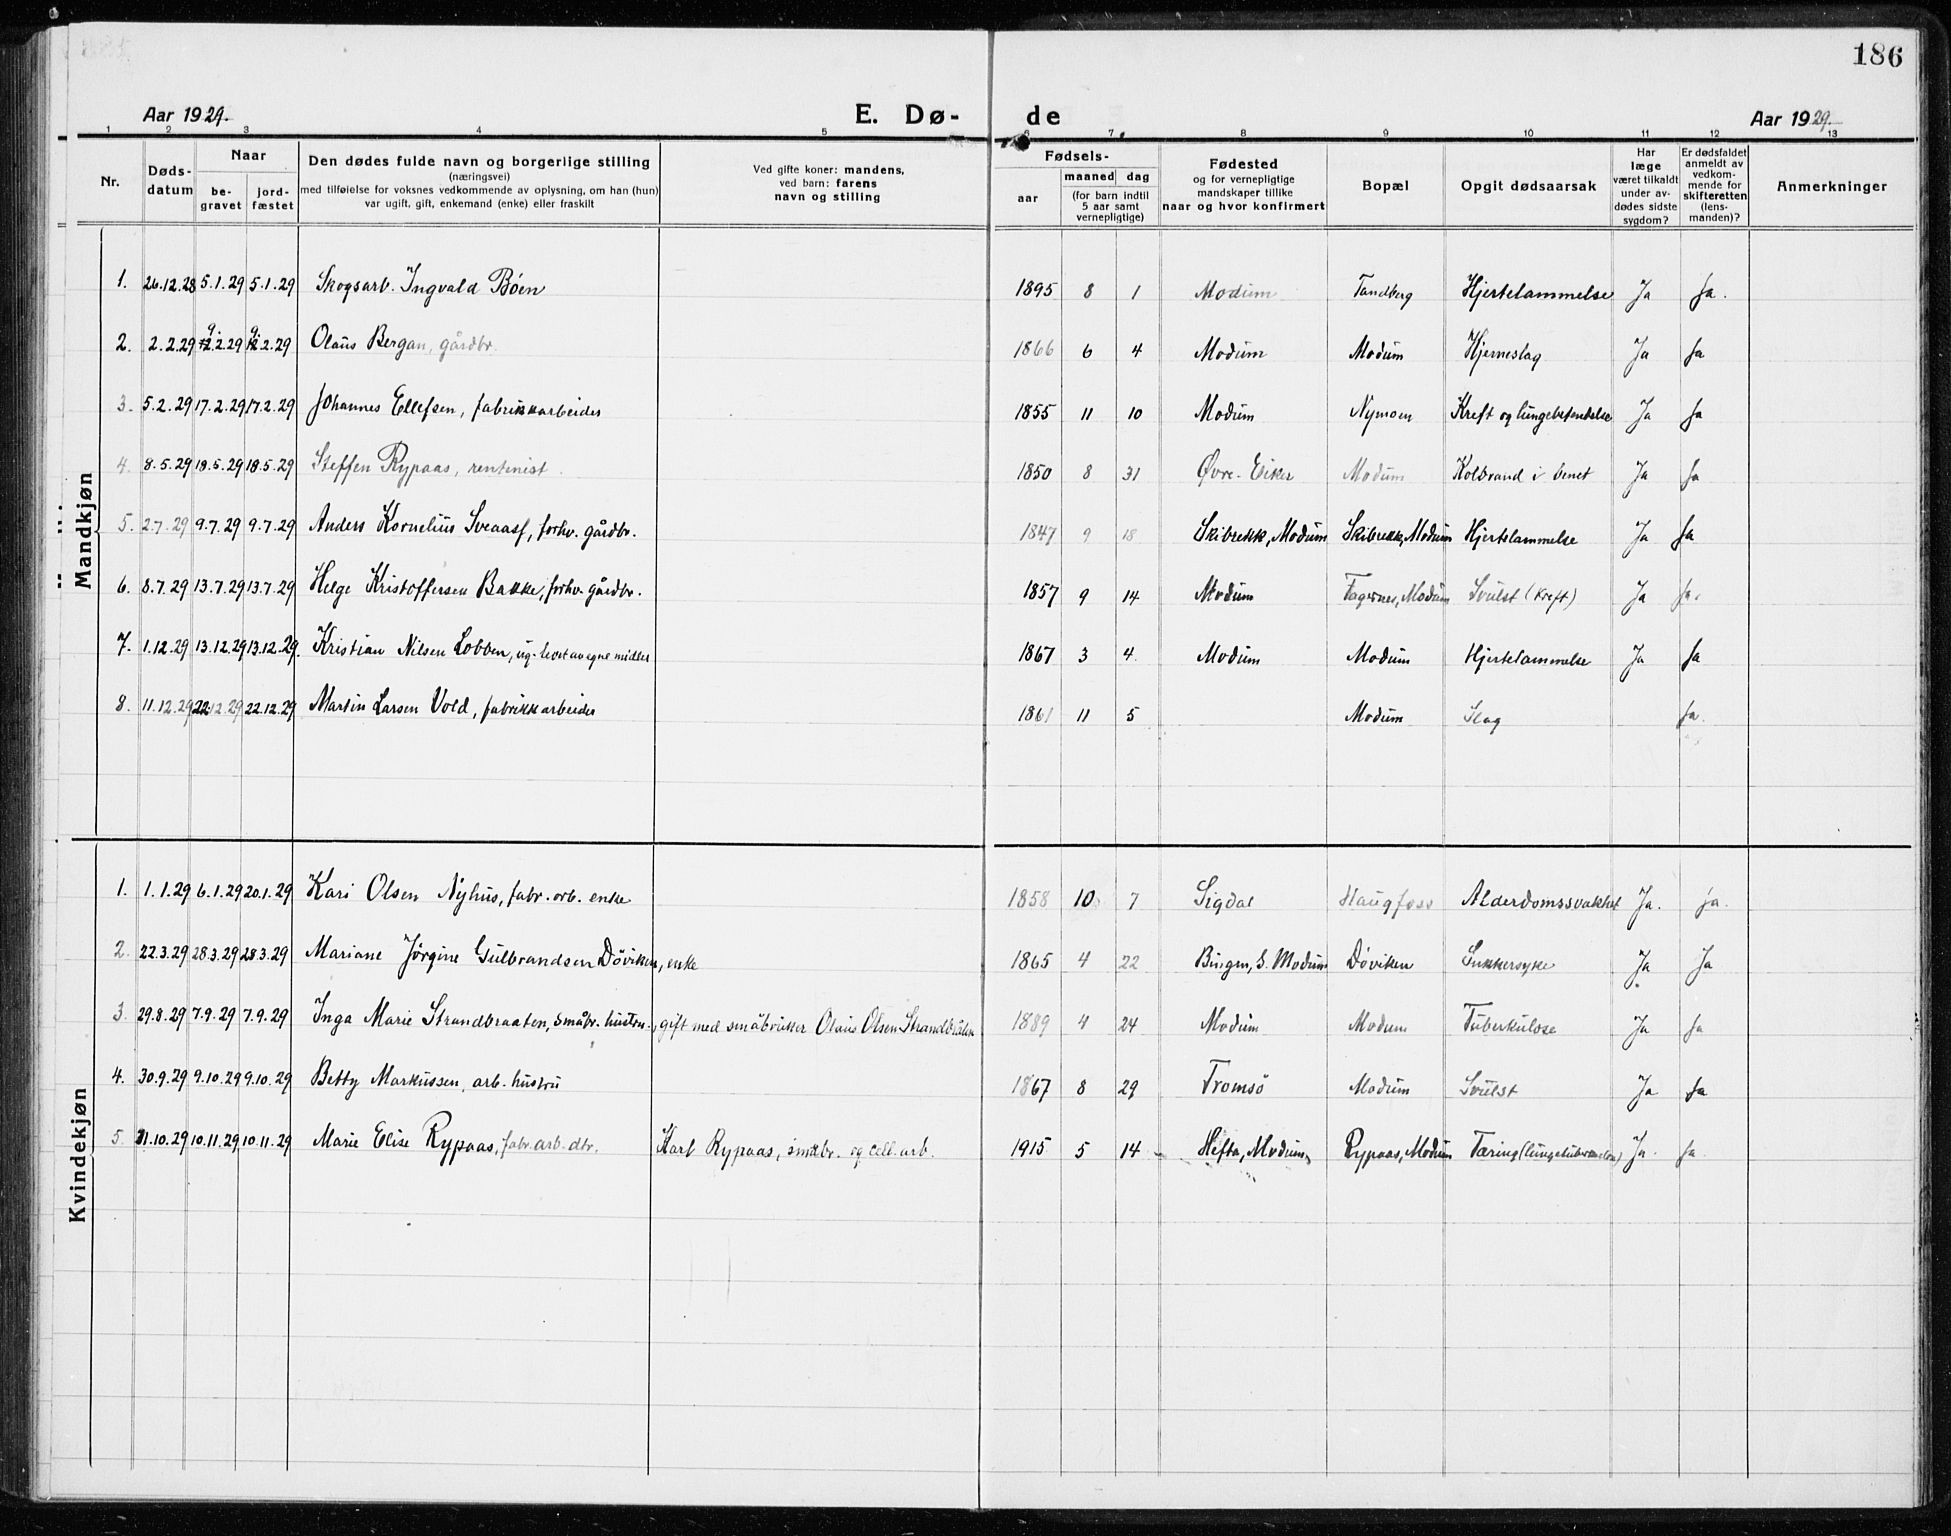 186
Aar 1929. E. Dø- de Aar 1929.
1 2 3 4 5 6 7 8 9 10 11 12 13
Nr. Døds-datum Naar be-gravet jord-fæstet Den dødes fulde navn og borgerlige stilling (næringsvei) med tilføielse for voksnes vedkommende av oplysning, om han (hun) var ugift, gift, enkemand (enke) eller fraskilt Ved gifte koner: mandens, ved barn: farens navn og stilling Fødsels- aar maaned dag (for barn indtil 5 aar samt vernepligtige) Fødested og for vernepligtige mandskaper tillike naar og hvor konfirmert Bopæl Opgit dødsaarsak Har læge været tilkaldt under av-dødes sidste sygdom? Er dødsfaldet anmeldt av vedkom-mende for skifteretten (lens-manden)? Anmerkninger
Mandkjøn
1. 26.12.28 5.1.29 5.1.29 Skogsarb. Ingvald Böen 1895 8 1 Modum Tandberg Hjertelammelse Ja Ja.
2. 2.2.29 9.2.29 9.2.29 Olaus Bergan, gårdbr. 1866 6 4 Modum Modum Hjerneslag Ja Ja
3. 5.2.29 17.2.29 17.2.29 Johannes Ellefsen, fabrikkarbeider 1855 11 10 Modum Nymoen Kreft og lungebetendelse Ja Ja
4. 8.5.29 18.5.29 18.5.29 Steffen Rypaas, rentenist. 1850 8 31 Øvre-Eiker Modum Kolbrand i benet Ja Ja
5. 2.7.29 9.7.29 9.7.29 Anders Kornelius Sveaas, forhv. gårdbr. 1847 9 18 Skibrekk, Modum Skibrekk, Modum Hjertelammelse Ja Ja
6. 8.7.29 13.7.29 13.7.29 Helge Kristoffersen Bakke, forhv. gårdbr. 1857 9 14 Modum Fagernes, Modum Svulst (kreft) Ja Ja.
7. 1.12.29 13.12.29 13.12.29. Kristian Nilsen Lobben, ug. levet av egne midler 1867 3 4. Modum Modum Hjertelammelse Ja Ja
8. 11.12.29 22.12.29 22.12.29 Martin Larsen Vold, fabrikkarbeider 1861 11 5 Modum Slag Ja.
Kvindekjøn
1. 1.1.29 6.1.29 20.1.29 Kari Olsen Nyhus, fabr.arb. enke 1858 10 7 Sigdal Haugfoss Alderdomssvakhet Ja. ja.
2. 22.3.29 28.3.29 28.3.29 Mariane Jørgine Gulbrandsen Döviken, enke 1865 4 22 Bingen, S. Modum Döviken Sukkersyke Ja Ja
3. 29.8.29 7.9.29 7.9.29 Inga Marie Strandbraaten, småbr. hustru, gift med småbruker Olaus Olsen Strandbråten 1889 4 24 Modum Modum Tuberkulose Ja Ja
4. 30.9.29 9.10.29 9.10.29 Betty Markussen, arb. hustru 1867 8 29 Tromsö Modum Svulst Ja Ja
5. 31.10.29 10.11.29 10.11.29 Marie Elise Rypaas, fabr.arb.dtr. Karl Rypaas, småbr. og cell.arb. 1915 5 14 Hefta, Modum, Rypaas, Modum Tæring (lungetuberkulose) Ja. Ja.